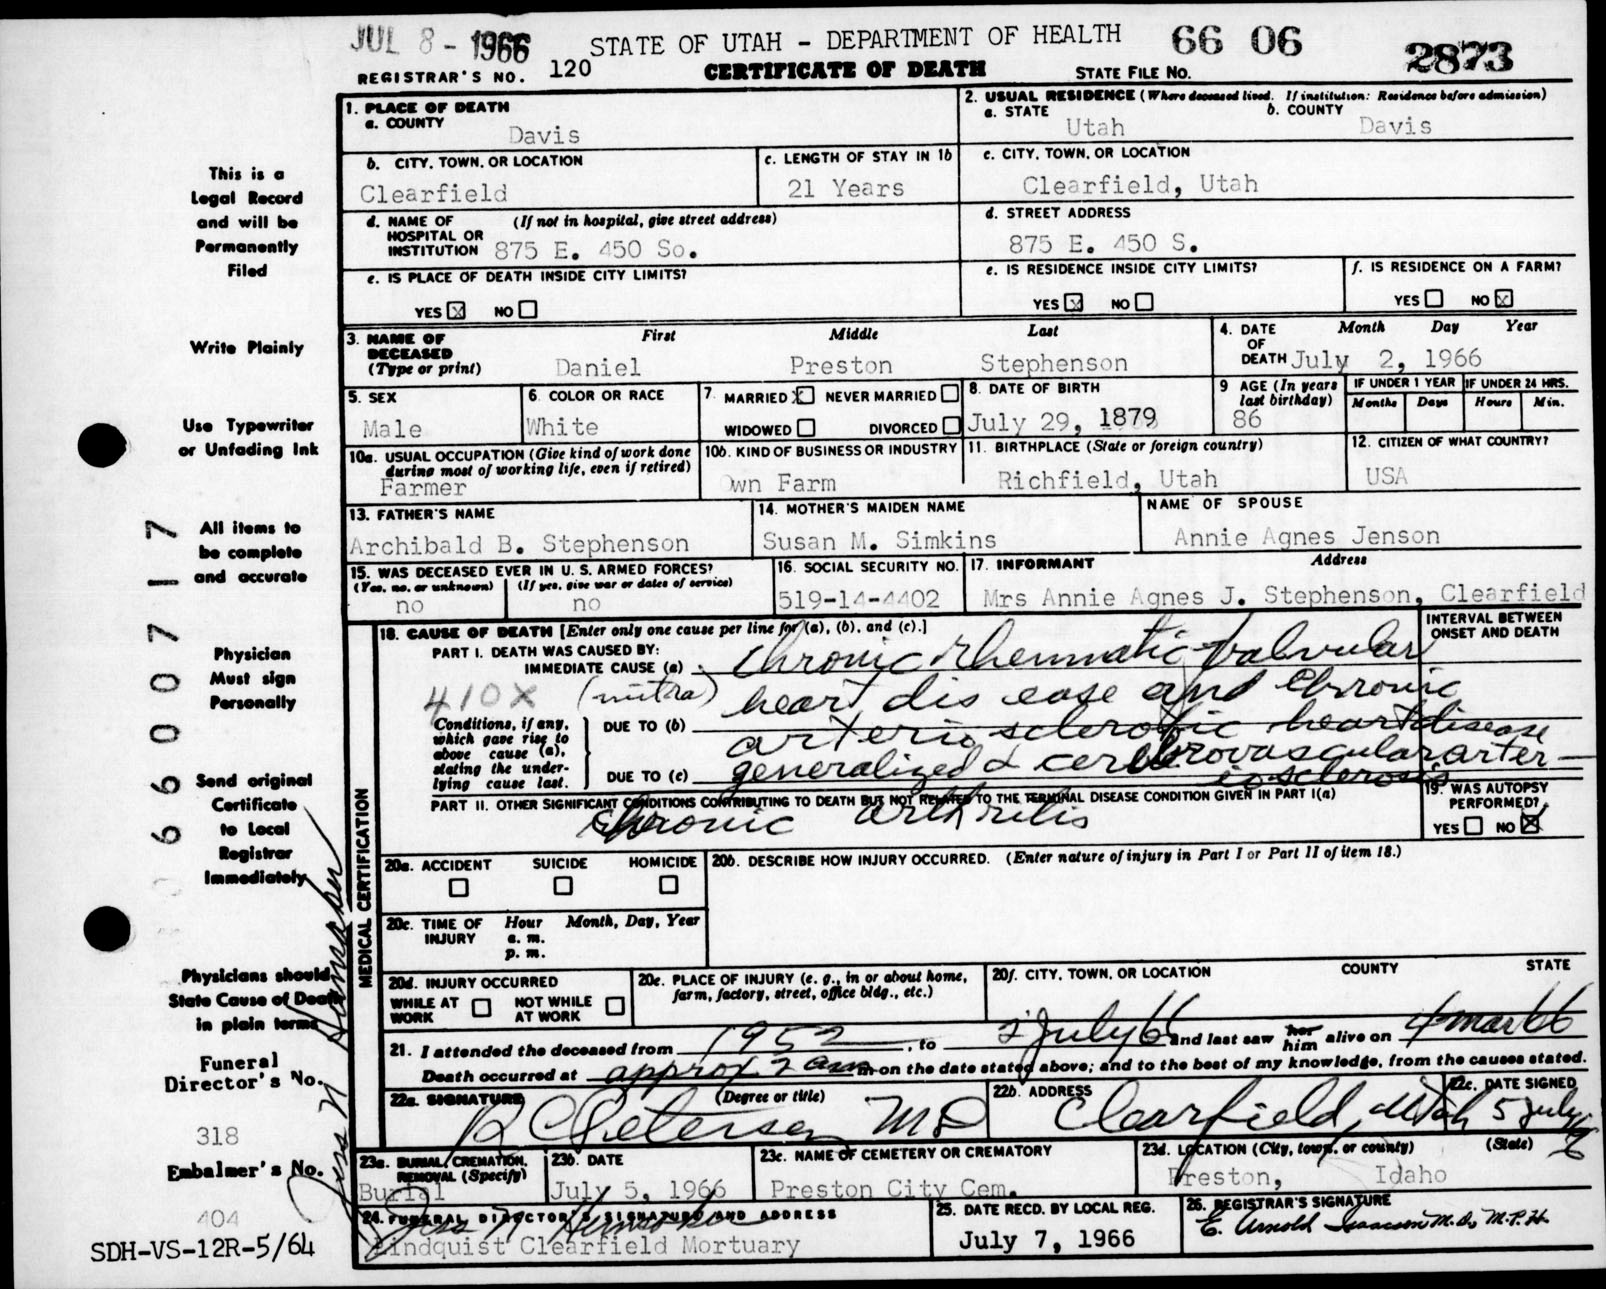 JUL 8 - 1966 STATE OF UTAH - DEPARTMENT OF HEALTH 66 06 2873
REGISTRAR'S NO. 120 CERTIFICATE OF DEATH STATE FILE NO.
This is a
Legal Record
and will be
Permanently
Filed
Write Plainly
Use Typewriter
or Unfading Ink
All items to
be complete
and accurate
Physician
Must sign
Personally
Send original
Certificate
to Local
Registrar
Immediately
Physicians should
State Cause of Death
in plain terms
Funeral
Director's No.
318
Embalmer's No.
404
SDH-VS-12R-5/64
0660071 7
1. PLACE OF DEATH
a. COUNTY
Davis
2. USUAL RESIDENCE (Where deceased lived. If institution: Residence before admission)
a. STATE b. COUNTY
Utah Davis
b. CITY, TOWN, OR LOCATION c. LENGTH OF STAY IN 1b
Clearfield 21 Years
c. CITY, TOWN, OR LOCATION
Clearfield, Utah
d. NAME OF (If not in hospital, give street address)
HOSPITAL OR
INSTITUTION 875 E. 450 So.
d. STREET ADDRESS
875 E. 450 S.
e. IS PLACE OF DEATH INSIDE CITY LIMITS?
YES X NO
e. IS RESIDENCE INSIDE CITY LIMITS? f. IS RESIDENCE ON A FARM?
YES X NO YES NO X
3. NAME OF First Middle Last
DECEASED
(Type or print) Daniel Preston Stephenson
4. DATE Month Day Year
OF
DEATH July 2, 1966
5. SEX 6. COLOR OR RACE
Male White
7. MARRIED X NEVER MARRIED
WIDOWED DIVORCED
8. DATE OF BIRTH
July 29, 1879
9 AGE (In years
last birthday)
86
IF UNDER 1 YEAR IF UNDER 24 HRS.
Months Days Hours Min.
10a. USUAL OCCUPATION (Give kind of work done
during most of working life, even if retired)
Farmer
10b. KIND OF BUSINESS OR INDUSTRY
Own Farm
11. BIRTHPLACE (State or foreign country)
Richfield, Utah
12. CITIZEN OF WHAT COUNTRY?
USA
13. FATHER'S NAME
Archibald B. Stephenson
14. MOTHER'S MAIDEN NAME
Susan M. Simkins
NAME OF SPOUSE
Annie Agnes Jenson
15. WAS DECEASED EVER IN U. S. ARMED FORCES?
(Yes, no, or unknown) (If yes, give war or dates of service)
no no
16. SOCIAL SECURITY NO.
519-14-4402
17. INFORMANT Address
Mrs Annie Agnes J. Stephenson, Clearfield
MEDICAL CERTIFICATION
18. CAUSE OF DEATH [Enter only one cause per line for (a), (b), and (c).]
INTERVAL BETWEEN
ONSET AND DEATH
PART I. DEATH WAS CAUSED BY:
IMMEDIATE CAUSE (a) chronic rheumatic valvular
410X (mitral) heart disease and chronic
Conditions, if any,
which gave rise to
above cause (a),
stating the under-
lying cause last.
DUE TO (b) arteriosclerotic heart disease
DUE TO (c) generalized & cerebrovascular arter-
iosclerosis
PART II. OTHER SIGNIFICANT CONDITIONS CONTRIBUTING TO DEATH BUT NOT RELATED TO THE TERMINAL DISEASE CONDITION GIVEN IN PART I(a)
Chronic arthritis
19. WAS AUTOPSY
PERFORMED?
YES NO X
20a. ACCIDENT SUICIDE HOMICIDE
20b. DESCRIBE HOW INJURY OCCURRED. (Enter nature of injury in Part I or Part II of item 18.)
20c. TIME OF Hour Month, Day, Year
INJURY a. m.
p. m.
20d. INJURY OCCURRED
WHILE AT NOT WHILE
WORK AT WORK
20e. PLACE OF INJURY (e. g., in or about home,
farm, factory, street, office bldg., etc.)
20f. CITY, TOWN, OR LOCATION COUNTY STATE
21. I attended the deceased from 1952, to 2 July 66 and last saw her him alive on 4 mar 66
Death occurred at approx 2 am m on the date stated above; and to the best of my knowledge, from the causes stated.
22a. SIGNATURE (Degree or title)
R C Petersen MD
22b. ADDRESS
Clearfield, Utah
22c. DATE SIGNED
5 July 66
23a. BURIAL, CREMATION,
REMOVAL (Specify)
Burial
23b. DATE
July 5, 1966
23c. NAME OF CEMETERY OR CREMATORY
Preston City Cem.
23d. LOCATION (City, town, or county) (State)
Preston, Idaho
24. FUNERAL DIRECTOR'S SIGNATURE AND ADDRESS
Lindquist Clearfield Mortuary
25. DATE RECD. BY LOCAL REG.
July 7, 1966
26. REGISTRAR'S SIGNATURE
E. Arnold Isaacson M.D., M.P.H.